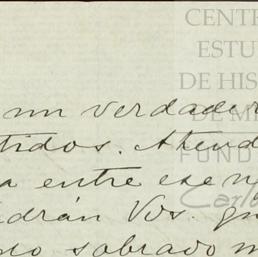 CENTR
ESTU
DE HIS
DE ME
FUND
Carlo
un verdader
tidos. Atend
a entre ese n
drán Vos. qu
no sobrado m